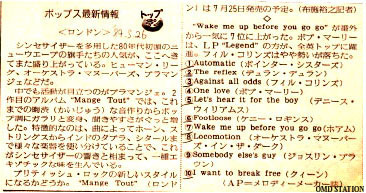 ポップス最新情報
トップ
＜ロンドン＞
シンセサイザーを多用した80年代初頭のニ
ューウエーブの旗手たちの人気が、ここへき
てまた盛り上がっている。ヒューマン・リー
グ、オーケストラ・ヌーバーズ、ブラマン
ジェなどだ。
中でも活動が目立つのがブラマンジェ。2
作目のアルバム"Mange Tout"では、これ
までの
調にガラリと変身、聞きやすさがぐっと増
した。特徴的なのは、曲によってホーン、ス
トリングスからインドのタブラ、シタールま
で様々な楽器を使い分けていることで、これ
がシンセサイザーの響きと相まって、一種エ
キゾチックな味を生んでいる。
ブリティッシュ・ロックの新しいスタイル
になるかどうか。"Mange Tout"（ロンド
ン）は7月25日発売の予定。（布施裕之記者）
"Wake me up before you go go"が番外
から一気に7位に上がった。ボブ・マーリー
は、LP"Legend"の方が、全英トップに躍
進。フィル・コリンズはやや勢いが落ちた。
1 Automatic（ポインター・シスターズ）
2 The reflex（デュラン・デュラン）
3 Against all odds（フィル・コリンズ）
4 One love（ボブ・マーリー）
5 Let's hear it for the boy（デニース・
ウィリアムス）
6 Footloose（ケニー・ロギンス）
7 Wake me up before you go go（ホアム）
8 Locomotion（オーケストラ・マヌーバー
ズ・イン・ザ・ダーク）
9 Somebody else's guy（ジョスリン・ブラ
ウン）
10 I want to break free（クィーン）
（APーメロディーメーカー
OMD STATION